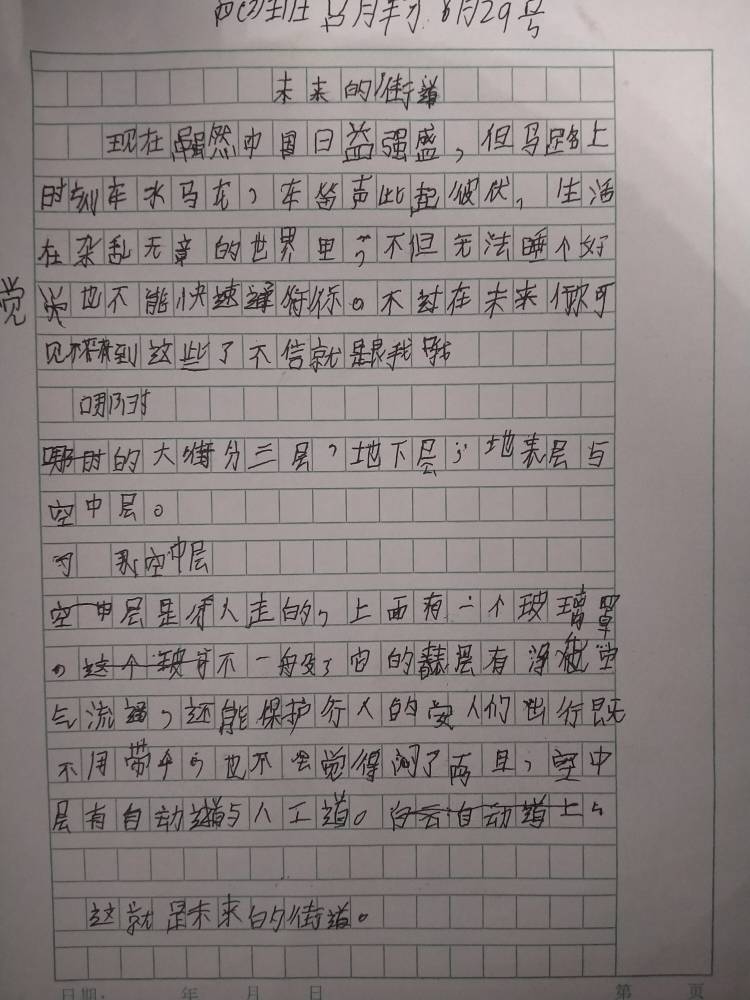 6月29号
未来的街道
现在虽然中国日益强盛，但马路上
时刻车水马龙，车笛声此起彼伏，生活
在杂乱无章的世界里，不但无法睡个好
觉
觉也不能快速通行。不过在未来你可
见不到这些了不信就跟我
那时的大街分三层，地下层，地表层与
空中层。
空中层
空中层是行人走的，上面有一个玻璃罩
，这个玻可不一般，它的表层有净化空
气流通，还能保护行人的安人们出行既
不用带伞，也不会觉得闷了而且，空中
层有自动道与人工道。自动道上
这就是未来的街道。
日期： 年 月 日 第 页